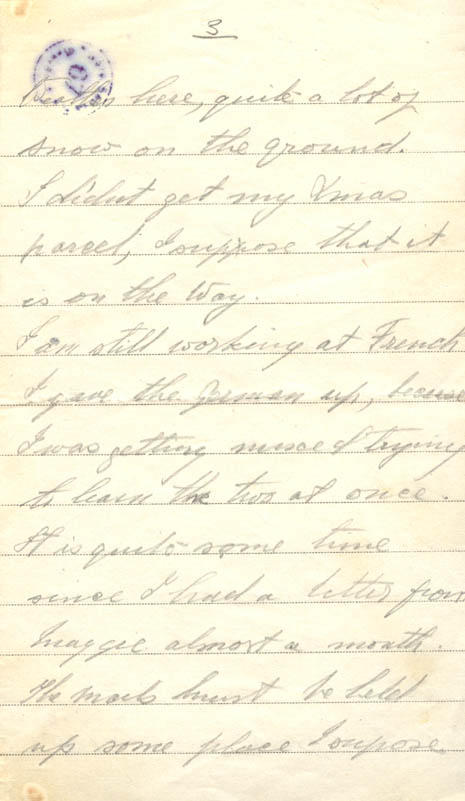 3
Weather here, quite a lot of
snow on the ground.
I didnt get my Xmas
parcel, I suppose that it
is on the way.
I am still working at French
I gave the German up, because
I was getting mixed trying
to learn the two at once.
It is quite some time
since I had a letter from
Maggie almost a month.
The mails must be held
up some place I supose